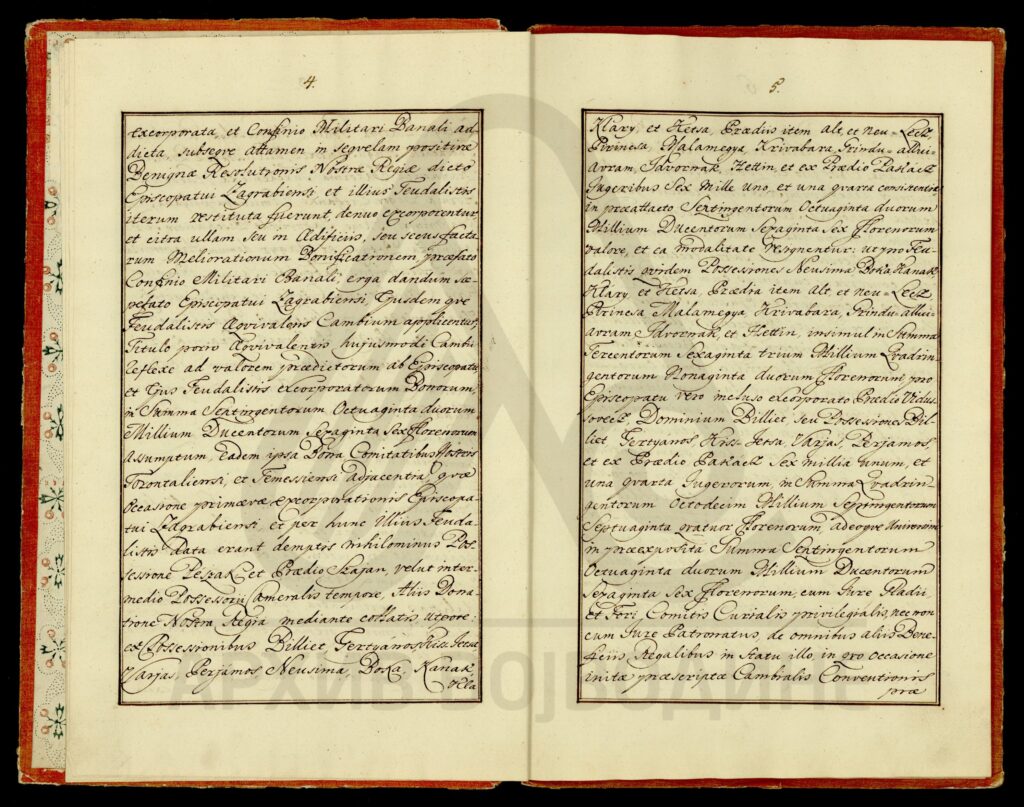 4.
excorporata, et Confinio Militari Banali ad
dicta, subseqve attamen in seqvelam positivæ
Benignæ Resolutionis Nostræ Regiæ dicto
Episcopatui Zagrabiensi, et illius Feudalistis
iterum restituta fuerunt, denuo excorporentur,
et citra ullam seu in Ædificiis, seu secus facta
rum Meliorationum Bonificationem præfato
Confinio Militari Banali, erga dandum sæ-
pefato Episcopatui Zagrabiensi, Ejusdemqve
Feudalistis Æqvivalens Cambium applicentur,
Titulo porro Æqvivalentis hujusmodi Cambii
reflexe ad valorem prædictorum ab Episcopatu,
et Ejus Feudalistis excorporatorum Bonorum,
in Summa Septingentorum Octuaginta duorum
Millium Ducentorum Sepaginta Sex Florenorum
Assumptum, Eadem ipsa Bona Comitatibus Nostris
Torontaliensi, et Temessiensi adjacentia, qvæ
Occasione primævæ excorporationis Episcopa-
tui Zagrabiensi, et per hunc Illius Feuda-
listis data erant, demptis nihilominus Pos-
sessione Peszak, et Prædio Szajan, velut inter-
medio Possessorii Cameralis tempore, Aliis Dona-
tione Nostra Regia mediante collatis, utpote:
ex Possessionibus Billiet, Gertyanos, Kiss-Jetsa
Varjas, Perjamos, Neusima, Boka, Kanak
Kla
5.
Klary, et Hetsa, Prædiis item Alt, et Neu-Lecz,
Pirinesa, Malamegya, Krivabara, Stindu-allui-
Avram, Idvornak, Hettin, et ex Prædio Pakacz
Jugeribus Sex Mille Uno, et una qvarta consistentia
in præattacto Septingentorum Octuaginta duorum
Millium Ducentorum Sepaginta Sex Florenorum
valore, et ea modalitate resignentur: ut pro Feu-
dalistis pridem Possessiones Neusima Boka Kanak
Klary, et Hetsa, Prædia item Alt, et Neu-Lecz,
Pirinesa, Malamegya, Krivabara, Stindu-allui
avram, Idvornak, et Hettin, insimul in Summa
Tercentorum Sexaginta trium Millium Qvadrin-
gentorum Nonaginta duorum Florenorum; pro
Episcopatu vero incluso excorporato Prædio Vidus
sovecz, Dominium Billiet, seu Possessiones Bil-
liet, Gertyanos, Kiss-Jetsa, Varjas, Perjamos,
et ex Prædio Pakacz Sex millia unum, et
una qvarta Jugerorum, in Summa Qvadrin-
gentorum Octodecim Millium Septingentorum
Septuaginta qvatuor Florenorum, adeoqve Universim
in præexposita Summa Septingentorum
Octuaginta duorum Millium Ducentorum
Sepaginta Sex Florenorum, cum Jure Gladii,
et Fori, Comitis Curialis privilegialis, nec non
cum Jure Patronatus, de omnibus aliis Bene-
ficiis Regalibus in Statu illo, in qvo Occasione
initæ præscriptæ Cambialis Conventionis
præ
АРХИВ ВОЈВОДИНЕ